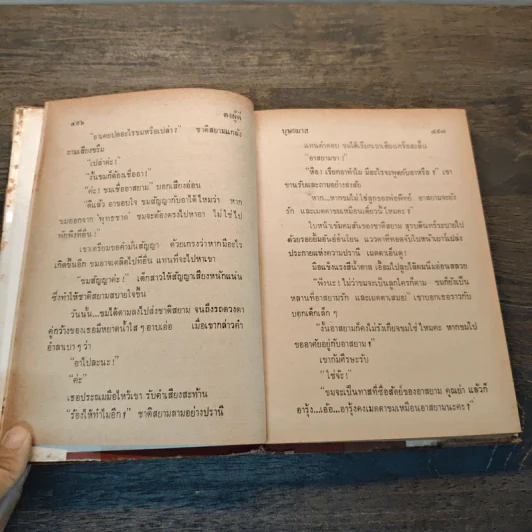 ๔๙๖
ดงผู้ดี
“อาเคยปดอะไรชมหรือเปล่า?” ชาติสยามแกล้ง
ถามเสียงขรึม
“เปล่าค่ะ!”
“งั้นชมก็ต้องเชื่ออา!”
“ค่ะ! ชมเชื่ออาสยาม” บอกเสียงอ่อน
“ดีแล้ว อาขอบใจ ชมสัญญากับอาได้ไหมว่า หาก
ชมออกจาก ‘พุทธชาด’ ชมจะต้องตรงไปหาอา ไม่ใช่ไป
พักพิงที่อื่น!”
เขาเตรียมขอคำมั่นสัญญา ด้วยเกรงว่าหากมีอะไร
เกิดขึ้นอีก ชมอาจเตลิดไปที่อื่น แทนที่จะไปหาเขา
“ชมสัญญาค่ะ!” เด็กสาวให้สัญญาเสียงหนักแน่น
ซึ่งทำให้ชาติสยามสบายใจขึ้น
วันนั้น...ชมได้ตามลงไปส่งชาติสยาม จนถึงรถดวงตา
คู่กว้างของเธอมีหยาดน้ำใส ๆ อาบเอ่อ เมื่อเขากล่าวคำ
อำลาเบา ๆ ว่า
“อาไปละนะ!”
“ค่ะ”
เธอประณมมือไหว้เขา รับคำเสียงสะท้าน
“ร้องไห้ทำไมอีก?” ชาติสยามถามอย่างปรานี
บุษยมาส
๔๙๗
แทนคำตอบ ชมได้เรียกเขาเสียงเครือสะอื้น
“อาสยามขา!”
“หือ! เรียกอาทำไม มีอะไรจะพูดกับอาหรือ?” เขา
ขานรับและถามอย่างสงสัย
“หาก...หากชมไม่ใช่ลูกของพ่อพิทย์ อาสยามจะยัง
รัก และเมตตาชมเหมือนเดี๋ยวนี้ไหมคะ?”
ใบหน้าเข้มคมสันของชาติสยาม สุรบดินทร์ระบายไป
ด้วยรอยยิ้มอันอ่อนโยน แววตาที่ทอดจับใบหน้าเยาว์เปล่ง
ประกายแห่งความปรานี เมตตาเอ็นดู!
มือแข็งแรงสีน้ำตาล เอื้อมไปลูบไล้ผมนิ่มอ่อนสลวย
“พึงนะ! ไม่ว่าชมจะเป็นลูกใครก็ตาม ชมก็ยังเป็น
หลานที่อาสยามรัก และเมตตาเสมอ” เขาบอกเธอราวกับ
บอกเด็กเล็ก ๆ
“งั้นอาสยามก็คงไม่รังเกียจชมใช่ไหมคะ หากชมไป
ขออาศัยอยู่กับอาสยาม?”
เขาก้มศีรษะรับ
“ใช่จ้ะ!”
“ชมจะเป็นทาสที่ซื่อสัตย์ของอาสยาม คุณย่า แล้วก็
อารุ้ง...เอ้อ...อารุ้งคงเมตตาชมเหมือนอาสยามนะคะ?”